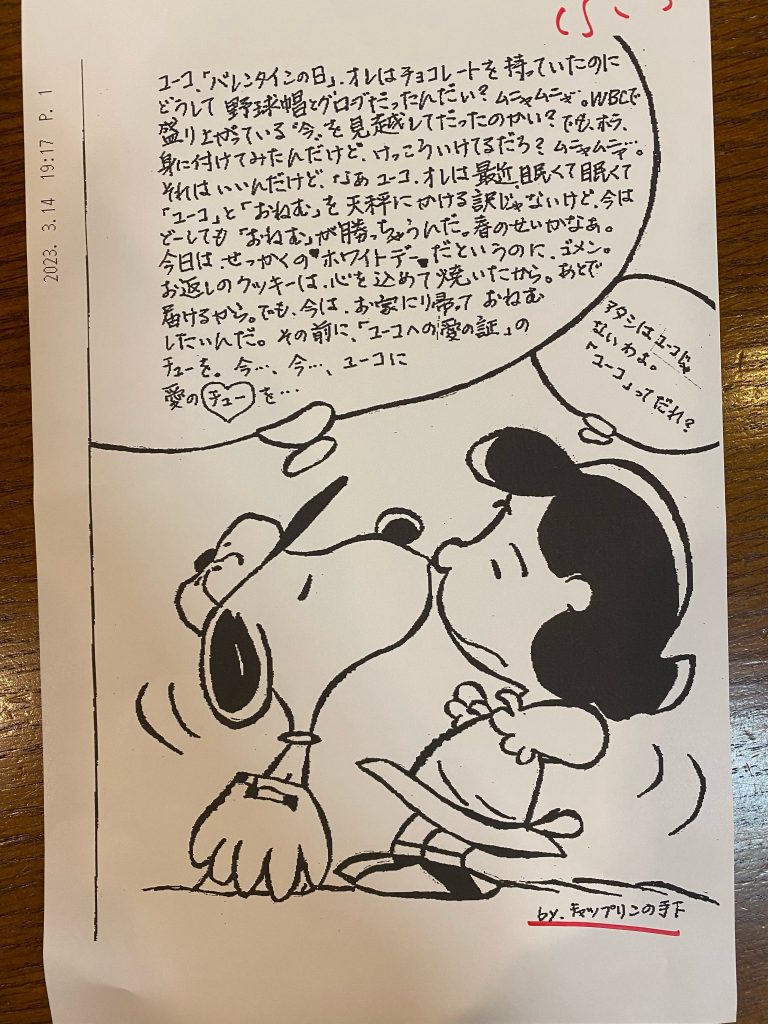 2023. 3.14 19:17 P. 1
ユーコ、「バレンタインの日」、オレはチョコレートを持っていたのに
どうして野球帽とグローブだったんだい？ムニャムニャ…。WBCで
盛り上がっている“今”を見越してだったのかい？でも、ホラ、
身に付けてみたんだけど、けっこういけてるだろ？ムニャムニャ…。
それはいいんだけど、なぁユーコ、オレは最近、眠くて眠くて
「ユーコ」と「おねむ」を天秤にかける訳じゃないけど、今は
どーしても「おねむ」が勝っちゃうんだ。春のせいかなあ。
今日は、せっかくの♥ホワイトデー♥だというのに、ゴメン。
お返しのクッキーは、心を込めて焼いたから。あとで
届けるから。でも、今は、お家に帰っておねむ
したいんだ。その前に、「ユーコへの愛の証」の
チューを。今…、今…、ユーコに
愛のチューを…
アタシはユーコじゃ
ないわよ。
「ユーコ」ってだれ？
by.キャップリンの手下